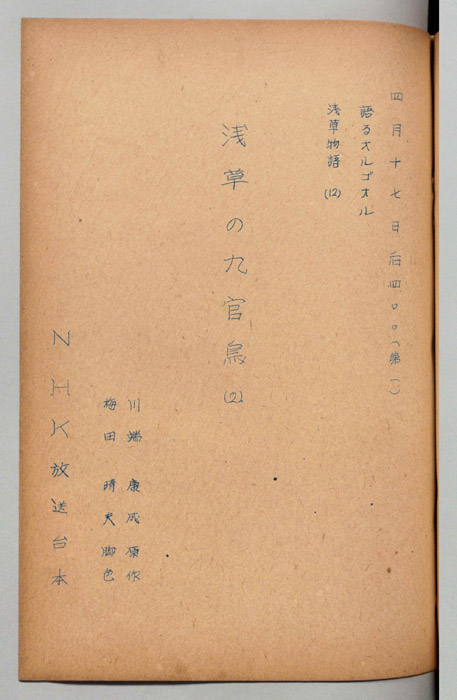 四月十七日后四、〇〇(第一)
語るオルゴオル
浅草物語(12)
浅草の九官鳥(2)
川端康成原作
梅田晴夫脚色
NHK放送台本